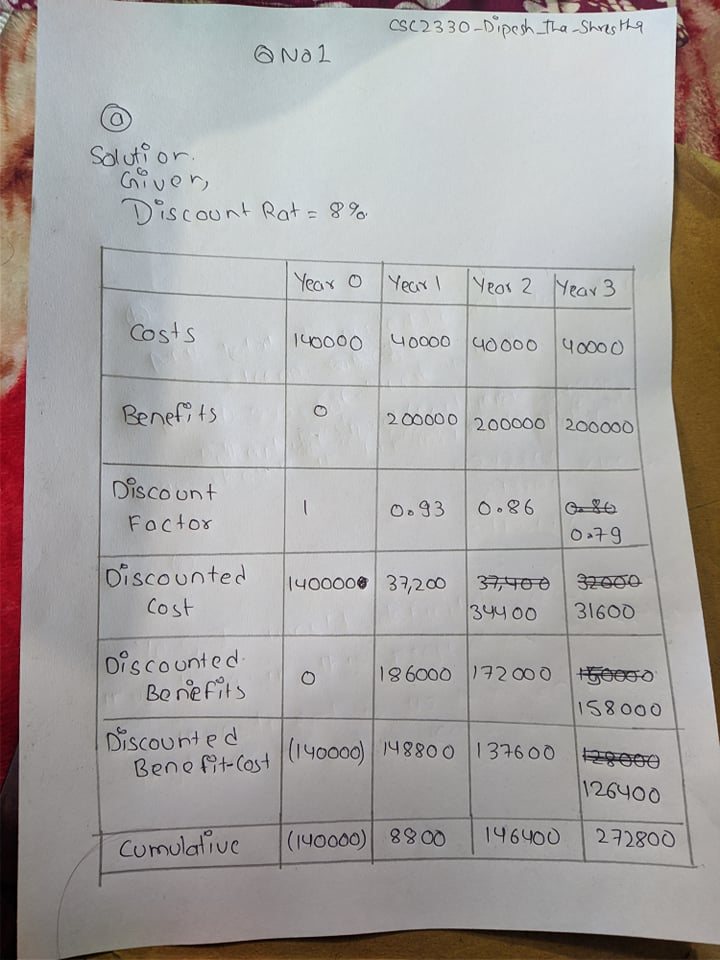 CSC2330-Dipesh_Jha-Shrestha
Q No 1
a
Solution.
Given,
Discount Rat = 8%.
Year 0 Year 1 Year 2 Year 3
Costs 140000 40000 40000 40000
Benefits 0 200000 200000 200000
Discount
Factor 1 0.93 0.86 0.86
0.79
Discounted
Cost 140000 37,200 37,400 32000
34400 31600
Discounted
Benefits 0 186000 172000 150000
158000
Discounted
Benefit-Cost (140000) 148800 137600 128000
126400
Cumulative (140000) 8800 146400 272800